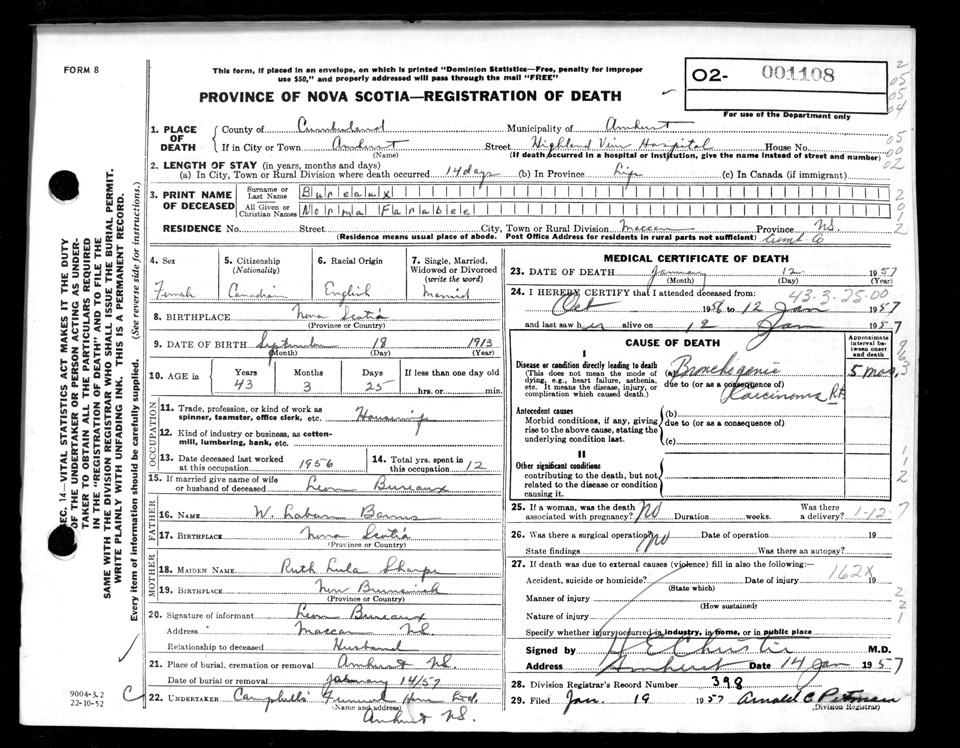 FORM 8
This form, if placed in an envelope, on which is printed "Dominion Statistics—Free, penalty for improper
use $50," and properly addressed will pass through the mail "FREE"
PROVINCE OF NOVA SCOTIA—REGISTRATION OF DEATH
O2- 001108
For use of the Department only
1. PLACE OF DEATH { County of Cumberland Municipality of Amherst
If in City or Town Amherst Street Highland View Hospital House No.
(Name) (If death occurred in a hospital or institution, give the name instead of street and number)
2. LENGTH OF STAY (in years, months and days)
(a) In City, Town or Rural Division where death occurred 14 days (b) In Province Life (c) In Canada (if immigrant)
3. PRINT NAME OF DECEASED
Surname or Last Name Bureaux
All Given or Christian Names Norma Farabee
RESIDENCE No. Street City, Town or Rural Division Maccan Province NS.
(Residence means usual place of abode. Post Office Address for residents in rural parts not sufficient) Cumb. Co
4. Sex Female
5. Citizenship (Nationality) Canadian
6. Racial Origin English
7. Single, Married, Widowed or Divorced (write the word) Married
8. BIRTHPLACE Nova Scotia
(Province or Country)
9. DATE OF BIRTH September 18 1913
(Month) (Day) (Year)
10. AGE in Years 43 Months 3 Days 25 If less than one day old hrs. or min.
OCCUPATION
11. Trade, profession or kind of work as spinner, teamster, office clerk, etc.
12. Kind of industry or business, as cotton-mill, lumbering, bank, etc.
13. Date deceased last worked at this occupation 1956
14. Total yrs. spent in this occupation 12
15. If married give name of wife or husband of deceased Leon Bureaux
FATHER
16. NAME W. Laban Barnes
17. BIRTHPLACE Nova Scotia
(Province or Country)
MOTHER
18. MAIDEN NAME Ruth Lula Sharpe
19. BIRTHPLACE New Brunswick
(Province or Country)
20. Signature of informant Leon Bureaux
Address Maccan NS.
Relationship to deceased Husband
21. Place of burial, cremation or removal Amherst NS.
Date of burial or removal January 14/57
22. UNDERTAKER Campbells Funeral Home Ltd.
(Name and address) Amherst NS.
MEDICAL CERTIFICATE OF DEATH
23. DATE OF DEATH January 12 1957
(Month) (Day) (Year)
24. I HEREBY CERTIFY that I attended deceased from: 43-3-25-00
Oct 1956 to 12 Jan 1957
and last saw her alive on 12 Jan 1957
CAUSE OF DEATH
Approximate interval between onset and death
I
Disease or condition directly leading to death
(This does not mean the mode of dying, e.g., heart failure, asthenia, etc. It means the disease, injury, or complication which caused death.)
(a) Bronchogenic 5 mos.
due to (or as a consequence of)
Carcinoma Rt.
Antecedent causes
Morbid conditions, if any, giving rise to the above cause, stating the underlying condition last.
(b)
due to (or as a consequence of)
(c)
II
Other significant conditions
contributing to the death, but not related to the disease or condition causing it.
25. If a woman, was the death associated with pregnancy? No Duration weeks. Was there a delivery? 1-12-7
26. Was there a surgical operation? No Date of operation 19
State findings Was there an autopsy?
27. If death was due to external causes (violence) fill in also the following:—
Accident, suicide or homicide? Date of injury 162X 19
(State which)
Manner of injury
(How sustained)
Nature of injury
Specify whether injury occurred in industry, in home, or in public place
Signed by Christie M.D.
Address Amherst Date 14 Jan 1957
28. Division Registrar's Record Number 398
29. Filed Jan. 19 1957 Arnold C.
(Division Registrar)
SEC. 14—VITAL STATISTICS ACT MAKES IT THE DUTY
OF THE UNDERTAKER OR PERSON ACTING AS UNDER-
TAKER TO OBTAIN ALL THE PARTICULARS REQUIRED
IN THE "REGISTRATION OF DEATH" AND TO FILE THE
SAME WITH THE DIVISION REGISTRAR WHO SHALL ISSUE THE BURIAL PERMIT.
WRITE PLAINLY WITH UNFADING INK. THIS IS A PERMANENT RECORD.
Every item of information should be carefully supplied. (See reverse side for instructions.)
9004-3.2
22-10-52